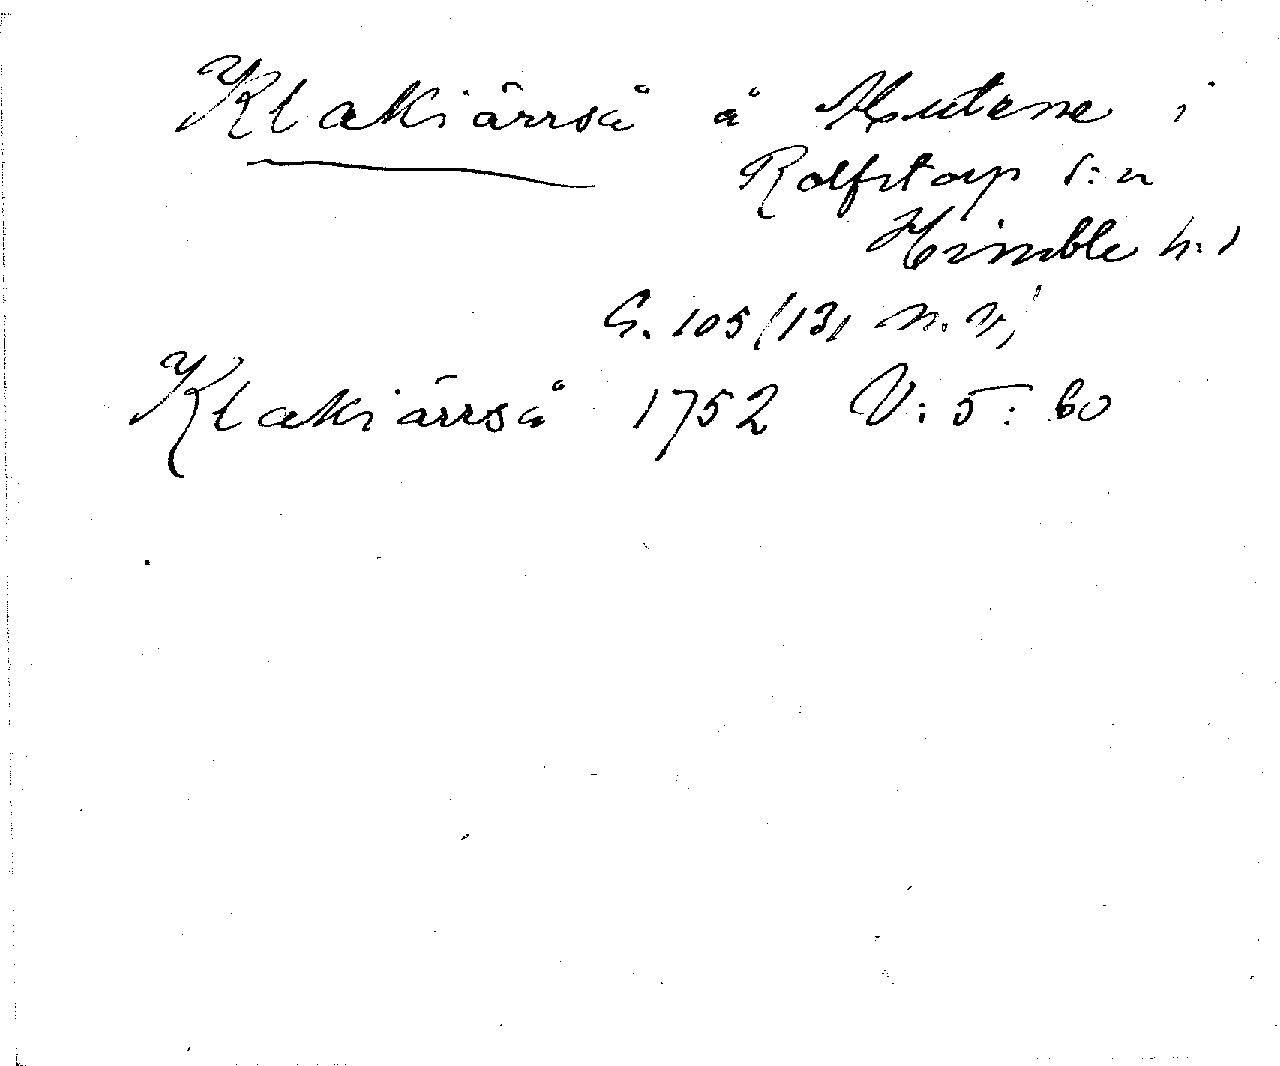 Klakiärrså å Mutene i
Rolfstorp s:n
Himble h:d
G. 105/131 n. v.
Klakiärrså 1752 V: 5: 60